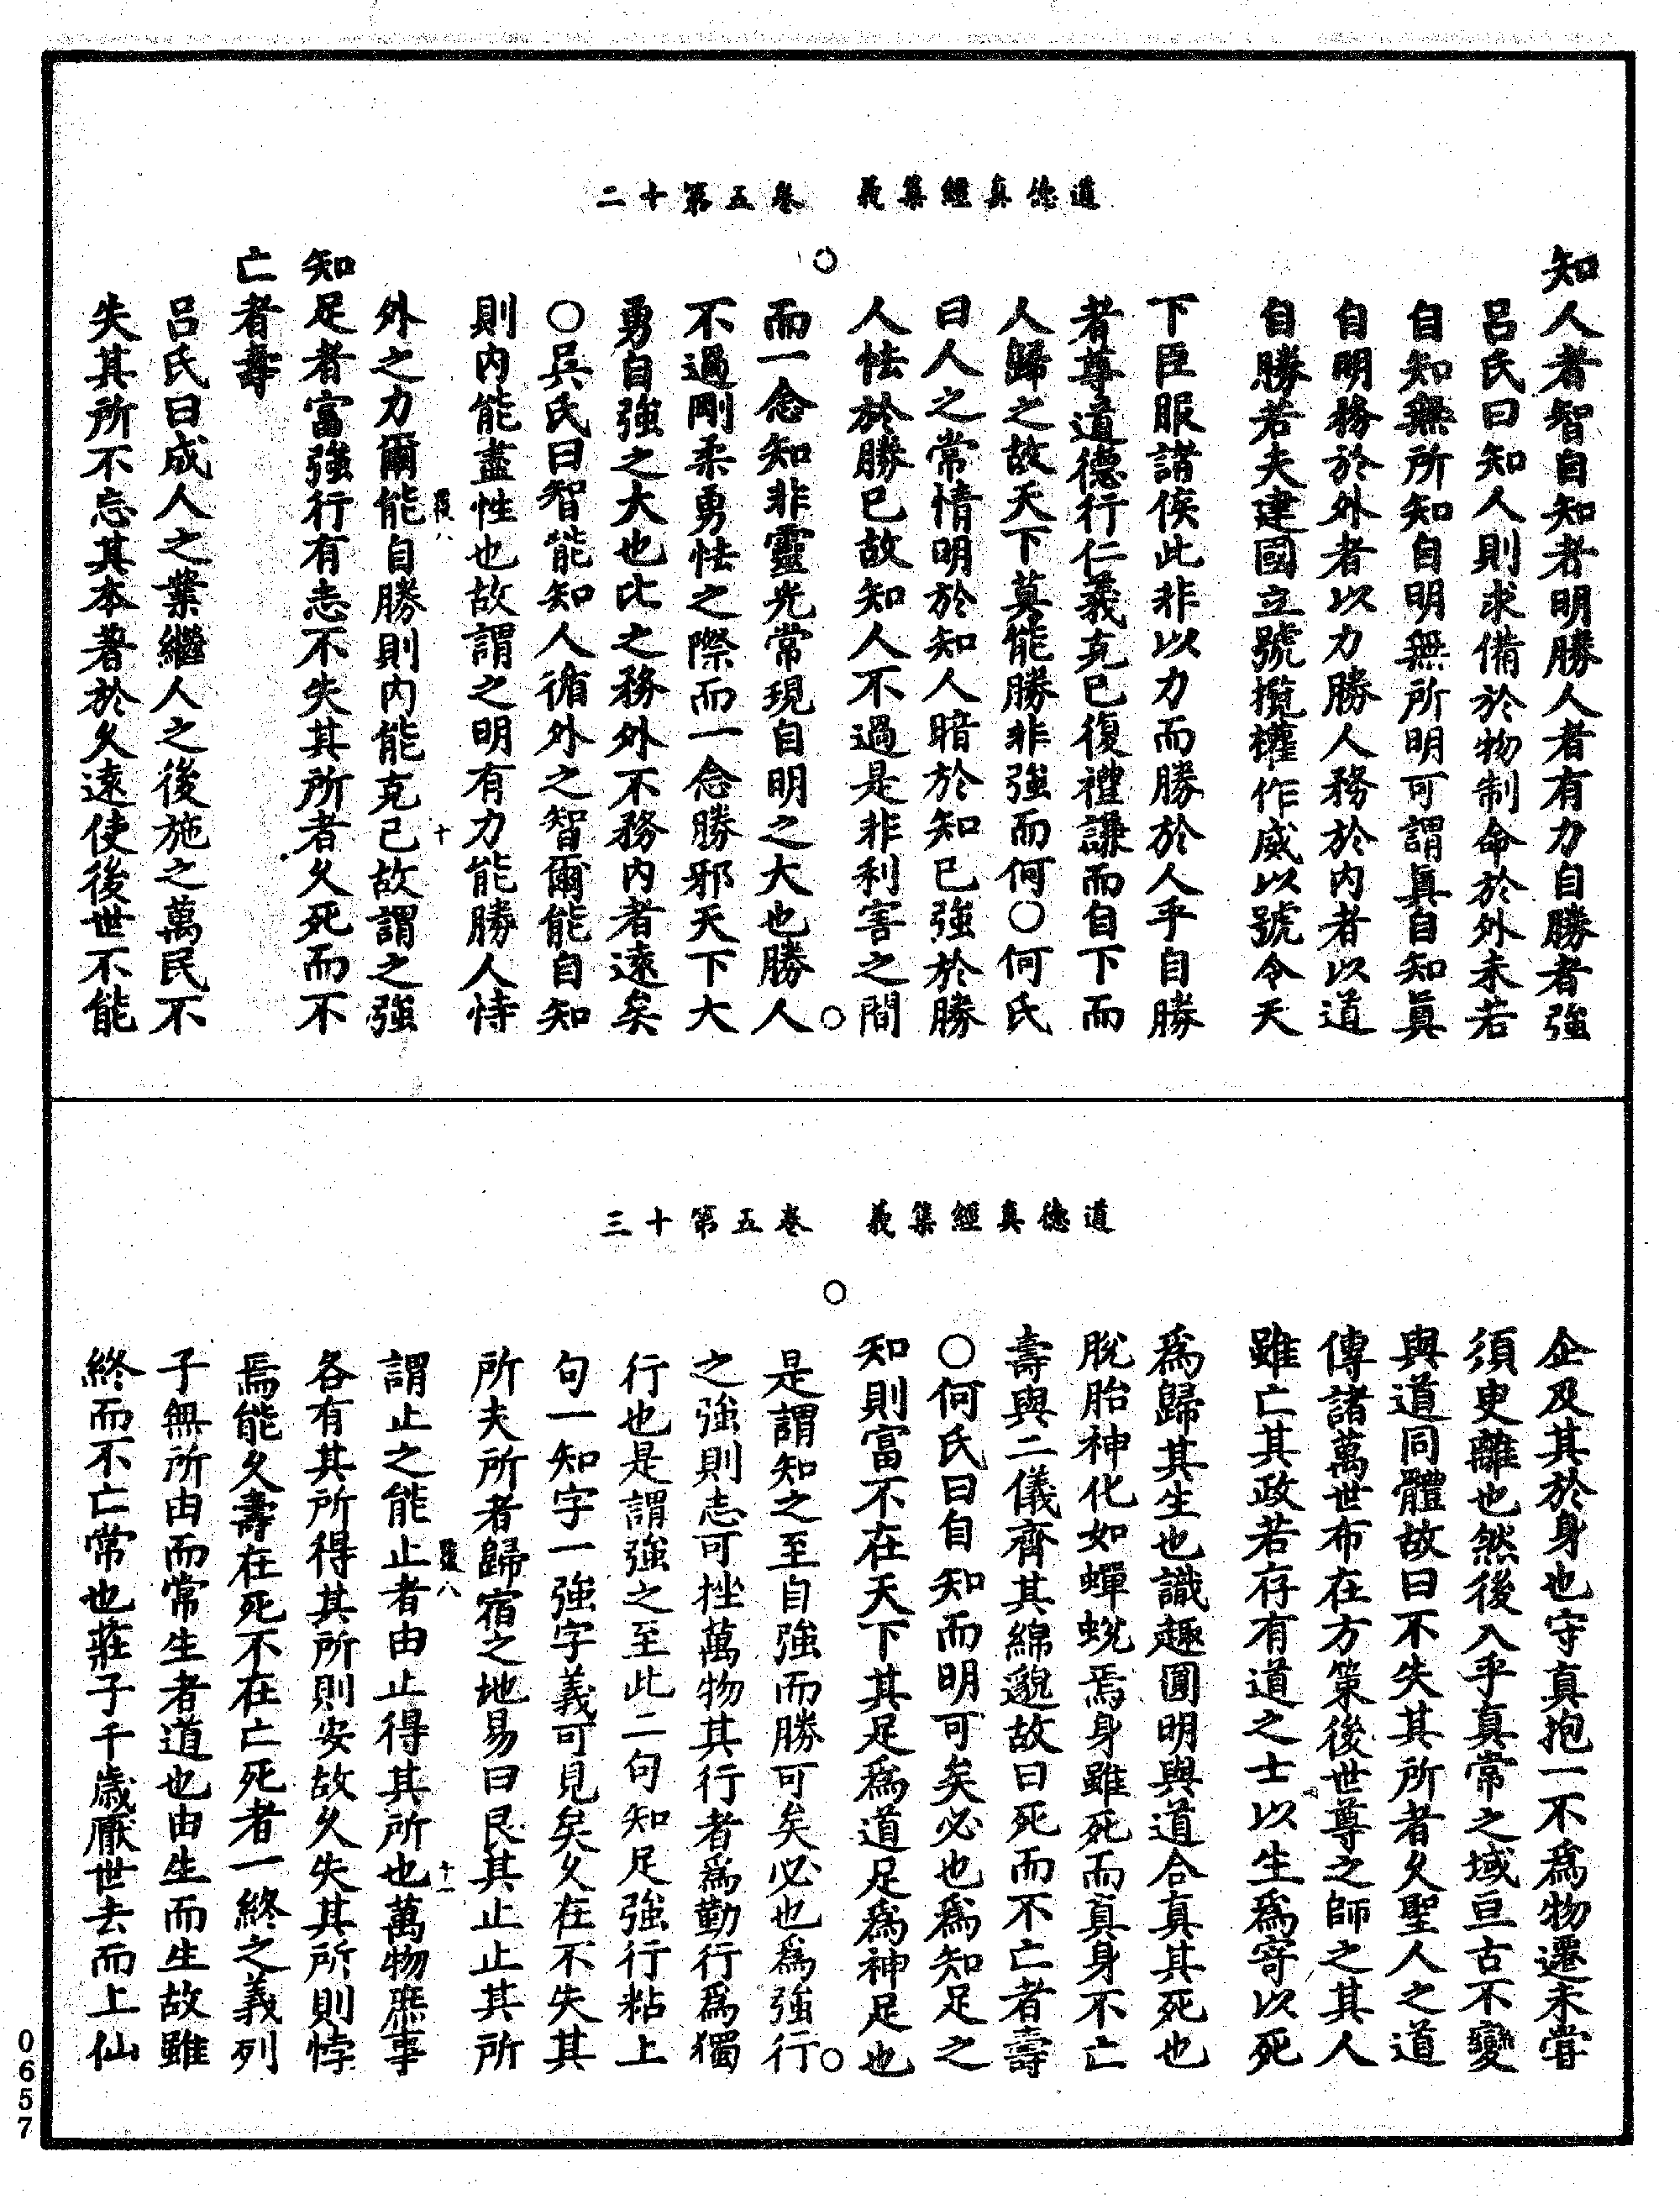 道德真經集義　卷五第十二
知人者智自知者明勝人者有力自勝者強
呂氏曰知人則求備於物制命於外未若
自知無所知自明無所明可謂眞自知眞
自明務於外者以力勝人務於內者以道
自勝若夫建國立號攬權作威以號令天
下臣服諸侯此非以力而勝於人乎自勝
者尊道德行仁義克己復禮謙而自下而
人歸之故天下莫能勝非強而何○何氏
曰人之常情明於知人暗於知己強於勝
人怯於勝己故知人不過是非利害之間
而一念知非靈光常現自明之大也勝人
不過剛柔勇怯之際而一念勝邪天下大
勇自強之大也比之務外不務內者遠矣
○吳氏曰智能知人循外之智爾能自知
則內能盡性也故謂之明有力能勝人恃
八　十
外之力爾能自勝則內能克己故謂之強
知足者富強行有志不失其所者久死而不
亡者壽
呂氏曰成人之業繼人之後施之萬民不
失其所不忘其本著於久遠使後世不能
道德真經集義　卷五第十三
企及其於身也守真抱一不爲物遷未甞
須臾離也然後入乎真常之域亘古不變
與道同體故曰不失其所者久聖人之道
傳諸萬世布在方策後世尊之師之其人
雖亡其政若存有道之士以生爲寄以死
爲歸其生也識趣圓明與道合真其死也
脫胎神化如蟬蛻焉身雖死而真身不亡
壽與二儀齊其綿邈故曰死而不亡者壽
○何氏曰自知而明可矣必也爲知足之
知則富不在天下其足爲道足爲神足也
是謂知之至自強而勝可矣必也爲強行
之強則志可挫萬物其行者爲勤行爲獨
行也是謂強之至此二句知足強行粘上
句一知字一強字義可見矣久在不失其
所夫所者歸宿之地易曰艮其止止其所
八　十一
謂止之能止者由止得其所也萬物庶事
各有其所得其所則安故久失其所則悖
焉能久壽在死不在亡死者一終之義列
子無所由而常生者道也由生而生故雖
終而不亡常也莊子千歲厭世去而上仙
0657